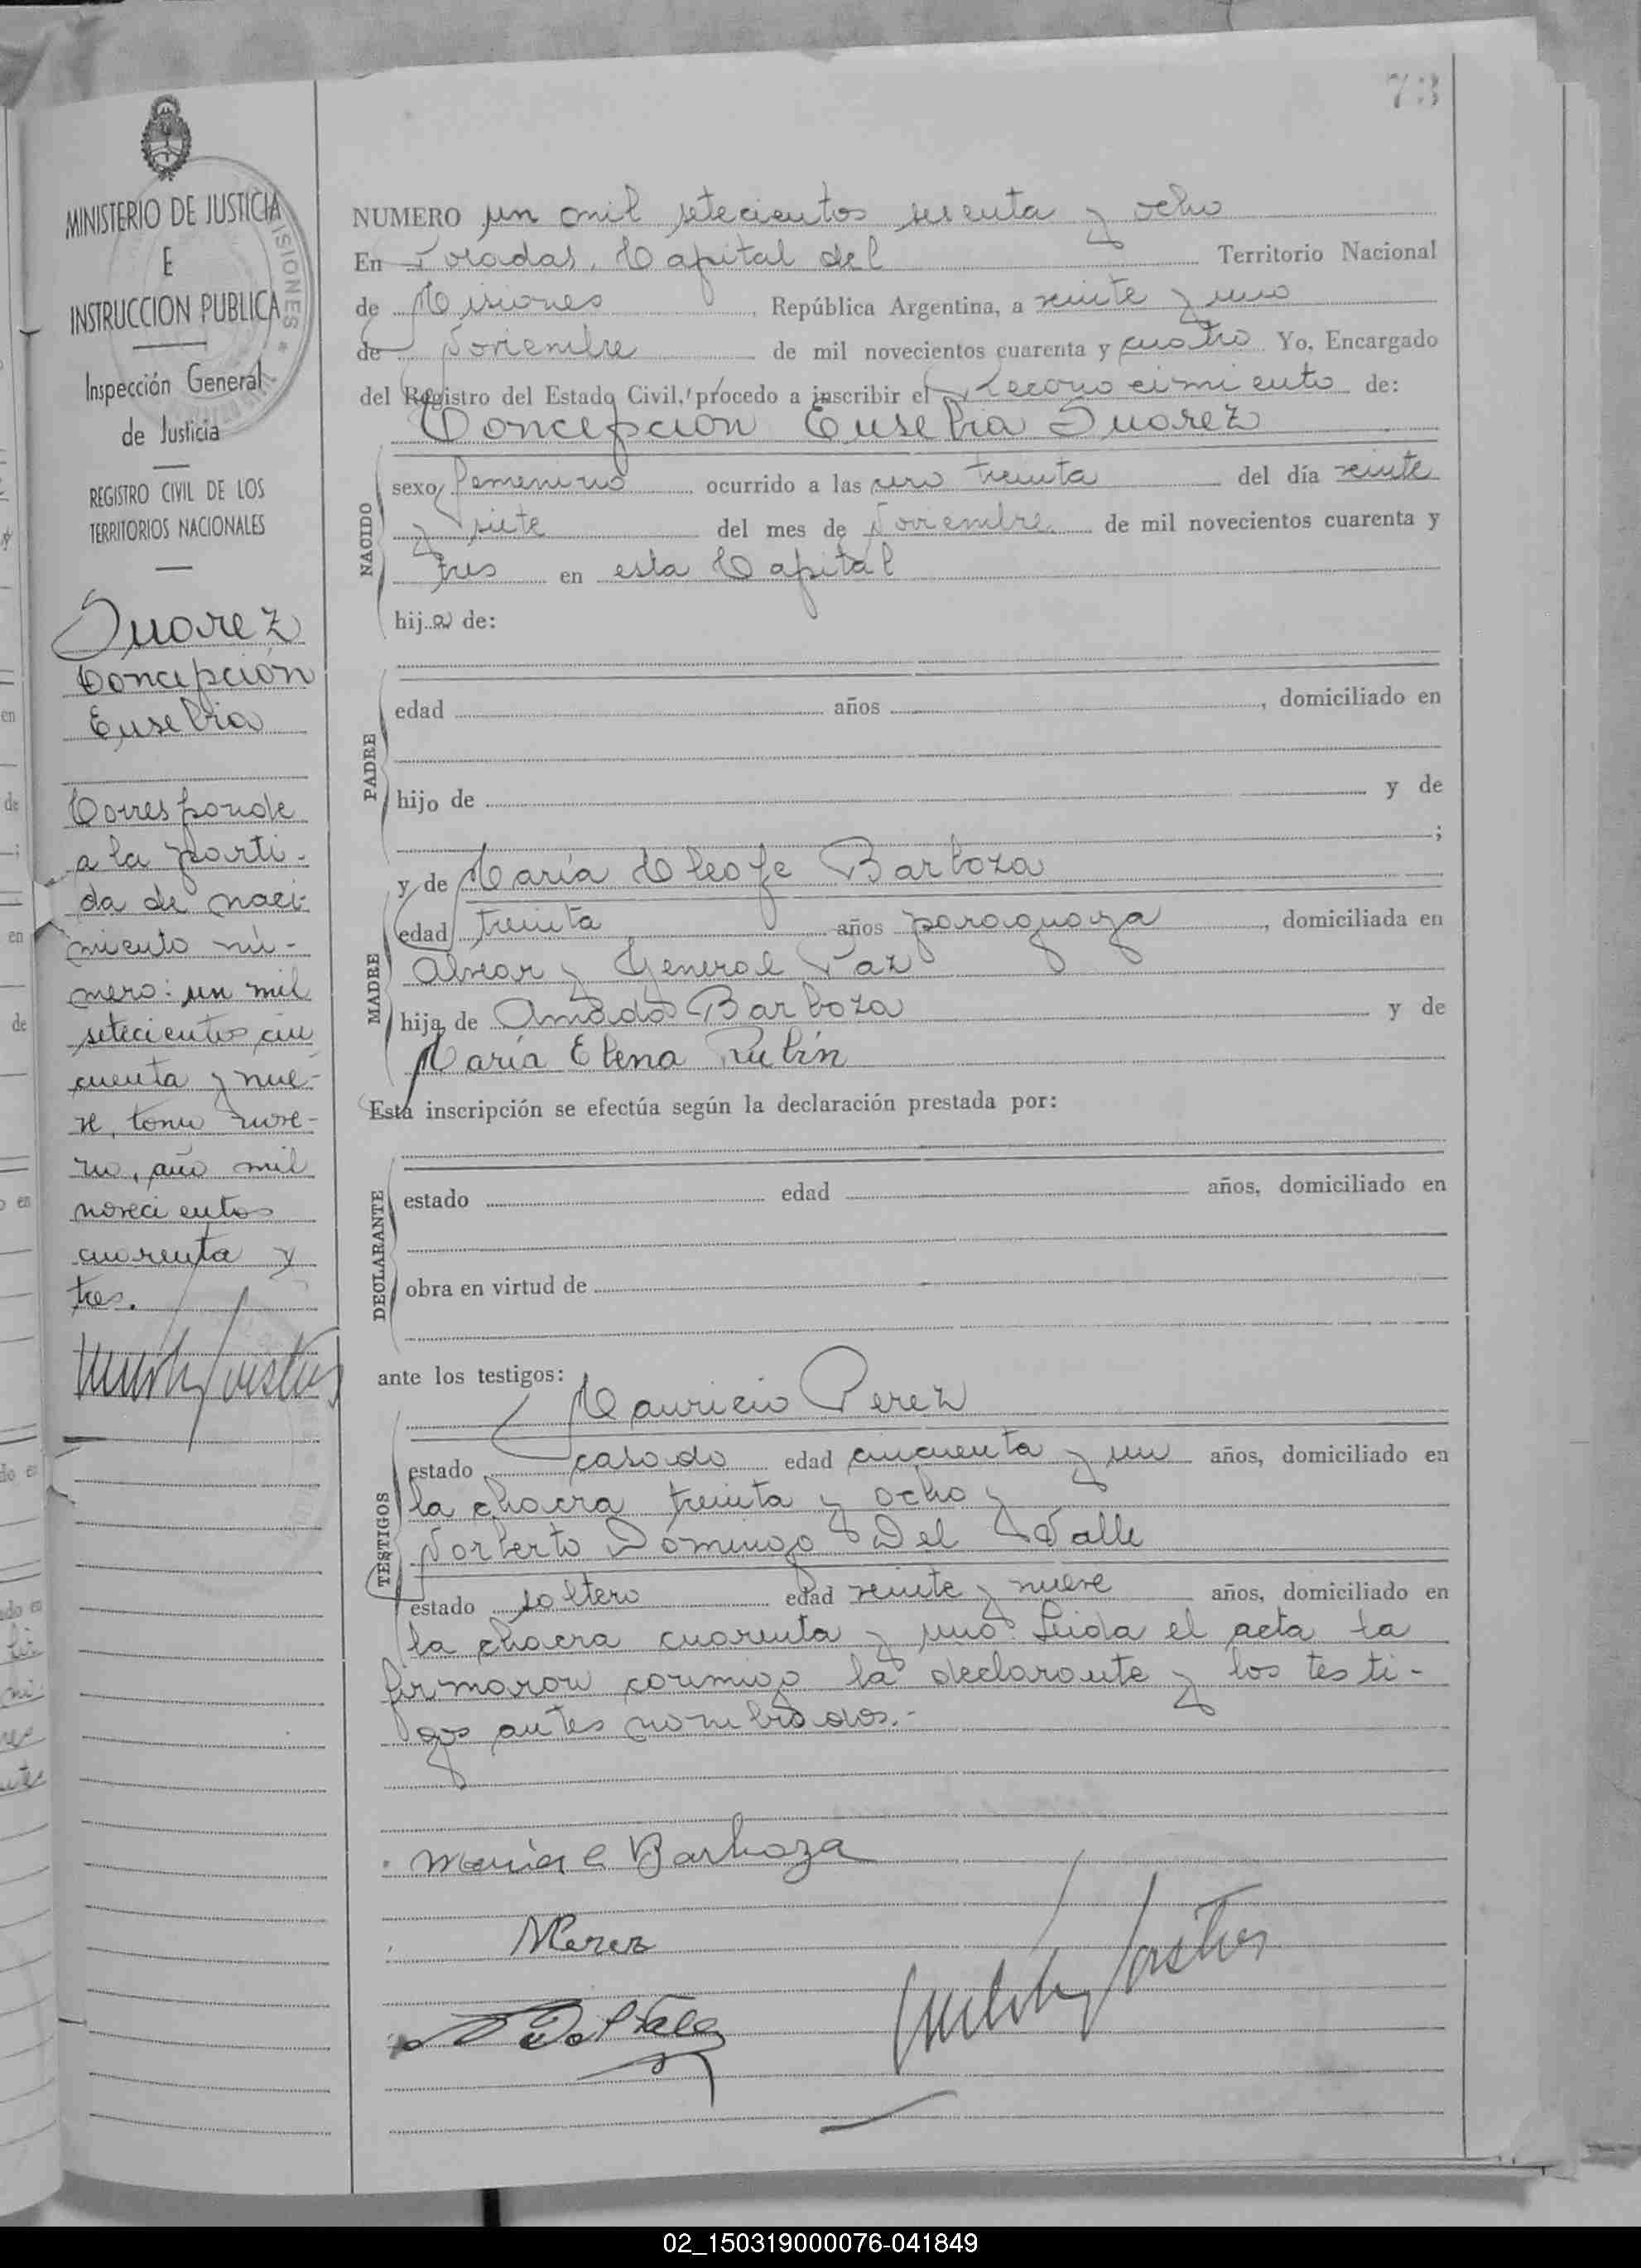 73
MINISTERIO DE JUSTICIA
E
INSTRUCCION PUBLICA
Inspección General
de Justicia
REGISTRO CIVIL DE LOS
TERRITORIOS NACIONALES
Suarez
Concepción
Eusebia
Corresponde
a la parti-
da de naci-
miento nú-
mero: un mil
setecientos cin
cuenta y nue-
ve, tomo
año mil
novecientos
cuarenta y
tres.
NUMERO un mil setecientos sesenta y ocho
En Posadas, Capital del Territorio Nacional
de Misiones, República Argentina, a veinte y uno
de Noviembre de mil novecientos cuarenta y cuatro Yo, Encargado
del Registro del Estado Civil, procedo a inscribir el Reconocimiento de:
Concepcion Eusebia Suarez
NACIDO
sexo femenino ocurrido a las cero treinta del día veinte
y siete del mes de Noviembre de mil novecientos cuarenta y
tres en esta Capital
hija de:
PADRE
edad años , domiciliado en
hijo de y de
;
MADRE
y de María Cleofe Barboza
edad treinta años paraguaya, domiciliada en
Alvear y General Paz
hija de Amado Barboza y de
María Elena Rubín
Esta inscripción se efectúa según la declaración prestada por:
DECLARANTE
estado edad años, domiciliado en
obra en virtud de
ante los testigos:
TESTIGOS
Mauricio Perez
estado casado edad cincuenta y un años, domiciliado en
la chacra treinta y ocho y
Norberto Domingo Del Valle
estado soltero edad veinte y nueve años, domiciliado en
la chacra cuarenta y uno. Leida el acta la
firmaron conmigo la declarante y los testi-
gos antes nombrados.-
Maria C Barboza
MPerez
N D Del Valle
02_150319000076-041849